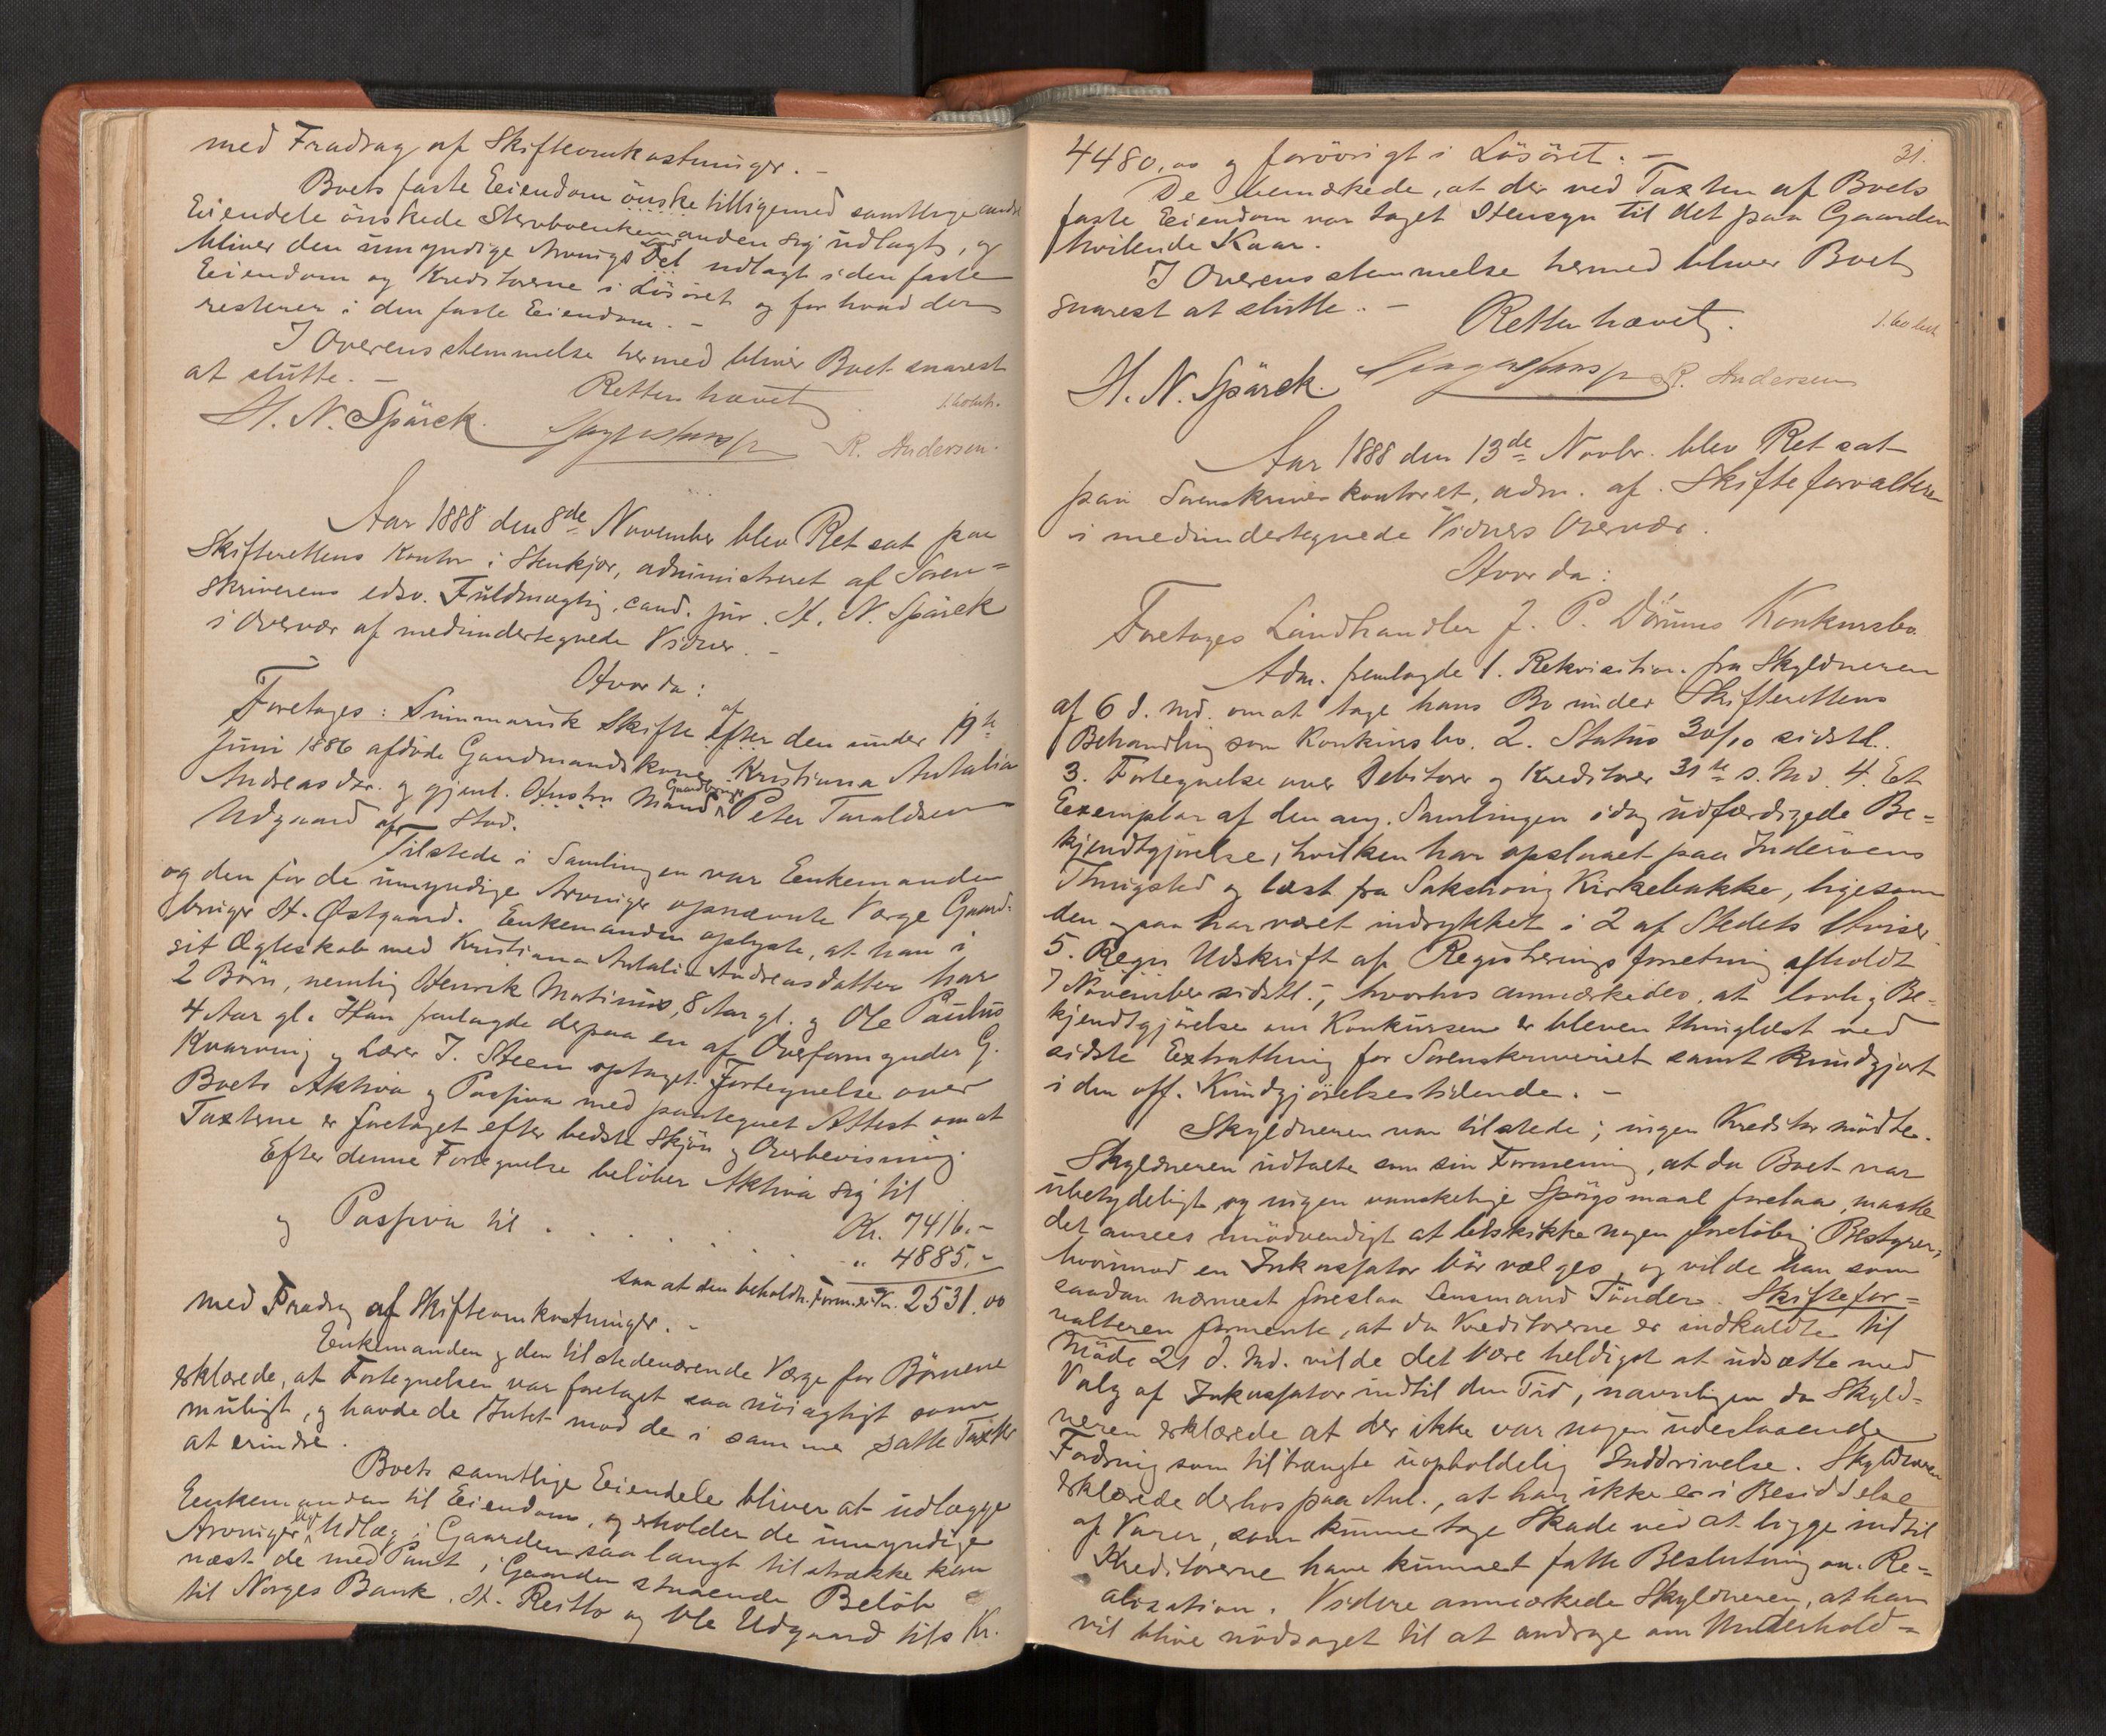 med Fradrag af Skifteomkostninger. -
Boets faste Eiendom önske tilligemed samtlige andre
Eiendele önskede Stervboenkemanden sig udlagt, og
bliver den umyndige Arvings Del udlagt i den faste
Eiendom og Kreditorerne i Lösöret og for hvad der
resterer i den faste Eiendom. -
I Overensstemmelse hermed bliver Boet snarest
at slutte. -
Retten hævet.
H. N. Spärck.
R. Andersen.
Aar 1888 den 8de November blev Ret sat paa
Skifterettens Kontor i Stenkjær, administreret af Soren=
skriverens edsv. Fuldmægtig, cand. jur. H. N. Spärck
i Overvær af medundertegnede Vidner. -
Hvor da:
Foretages: Summarisk Skifte af efter den under 19de
Juni 1886 afdöde Gaardmandskone Kristiana Antalia
Andreasdtr. og gjenl. Hustru Mand Gaardbruger Peter Taraldsen
Udgaard af Stod.
Tilstede i Samlingen var Enkemanden
og den for de umyndige Arvinger opnævnte Værge Gaard-
bruger H. Østgaard. Enkemanden oplyste, at han i
sit Ægteskab med Kristiana Antalia Andreasdatter har
2 Börn, nemlig Henrik Martinus, 8 Aar gl. og Ole Paulus
4 Aar gl. Han fremlagde derpaa en af Overformynder G.
Kvarving og Lærer J. Steen optaget Fortegnelse over
Boets Aktiva og Passiva med paategnet Attest om at
Taxterne er foretaget efter bedste Skjön og Overbevisning.
Efter denne Fortegnelse belöber Aktiva sig til
Kr. 7416.-
og Passiva til . . . . . . " 4885.-
saa at den beholdn. Form. er Kr. 2531.00
med Fradrag af Skifteomkostninger. -
Enkemanden og den tilstedeværende Værge for Börnene
erklærede, at Fortegnelsen var foretaget saa nöiagtigt som
muligt, og havde de Intet mod de i samme satte Taxter
at erindre.
Boets samtlige Eiendele bliver at udlægge
Enkemanden til Eiendom, og erholder de umyndige
Arvinger Udlæg i Gaarden saa langt tilstrække kan
næst de med Pant i Gaarden staaende Belöb
til Norges Bank, H. Reitlo og Ole Udgaard tils Kr.
31.
4480,00 og forövrigt i Lösöret. -
De bemærkede, at der ved Taxten af Boets
faste Eiendom var taget Hensyn til det paa Gaarden
hvilende Kaar.
I Overensstemmelse hermed bliver Boet
snarest at slutte. -
Retten hævet.
H. N. Spärck.
R. Andersen
Aar 1888 den 13de Novbr. blev Ret sat
paa Sorenskriverkontoret, adm. af Skifteforvalteren
i medundertegnede Vidners Overvær.
Hvor da:
Foretages Landhandler J. P. Dörums Konkursbo.
Adm. fremlagde 1. Rekvisition fra Skyldneren
af 6 d. Md. om at tage hans Bo under Skifterettens
Behandling som Konkursbo. 2. Status 30/10 sidstl.
3. Fortegnelse over Debitorer og Kreditorer 31te s. Md. 4. Et
Exemplar af den ang. Samlingen idag udfærdigede Be=
kjendtgjörelse, hvilken har opslaaet paa Inderöens
Thingsted og læst fra Sakshoug Kirkebakke, ligesom
den ogsaa har været indrykket i 2 af Stedets Aviser.
5. Regis Udskrift af Registreringsforretning afholdt
7 November sidstl.-, hvorhos anmærkedes, at lovlig Be-
kjendtgjörelse om Konkursen er bleven thinglæst ved
sidste Extrathing for Sorenskriveriet samt kundgjort
i den off. Kundgjörelsestidende. -
Skyldneren var tilstede; ingen Kreditor mödte.
Skyldneren udtalte som sin Formening, at da Boet var
ubetydeligt, og ingen vanskelige Spörgsmaal forelaa, maatte
det ansees unödvendigt at beskikke nogen foreløbig Bestyrer,
hvorimod en Inkassator bör vælges, og vilde han som
saadan nærmest foreslaa Lensmand Tönder. Skiftefor=
valteren formente, at da Kreditorerne er indkaldte til
Möde 21 d. Md. vilde det være heldigst at udsætte med
Valg af Inkassator indtil den Tid, navnligen da Skyld-
neren erklærede at der ikke var nogen udestaaende
Fordring som tiltrængte uopholdelig Inddrivelse. Skyldneren
erklærede derhos paa Anl., at han ikke er i Besiddelse
af Varer, som kunne tage Skade ved at ligge indtil
Kreditorerne have kunnet fatte Beslutning om Re=
alisation. Videre anmærkede Skyldneren, at han
vil blive nödsaget til at andrage om Underhold=